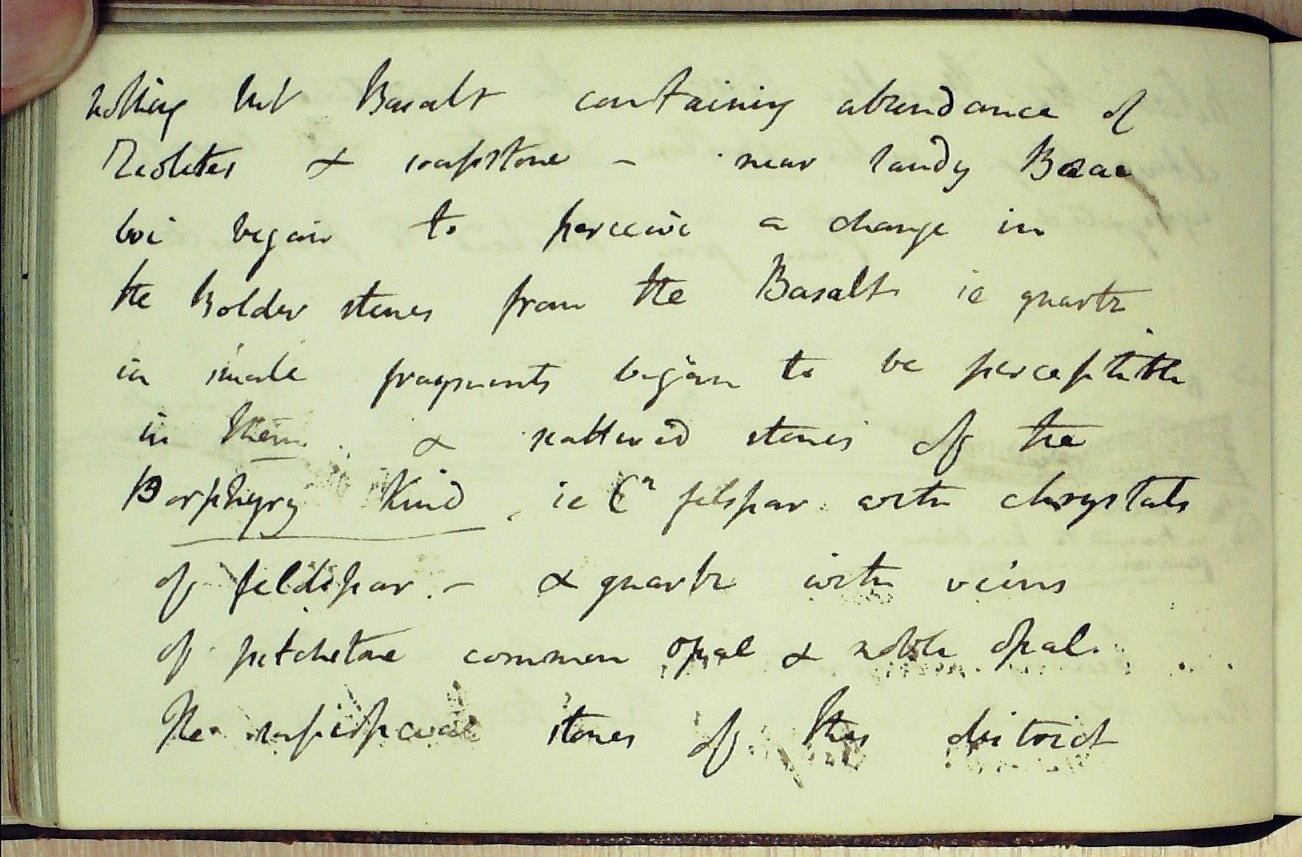 nothing but Basalt containing abundance of
Zeolites & soapstone - near Sandy Brae
we began to perceive a change in
the bolder stones from the Basalts ie quartz
in small fragments began to be perceptible
in them. & scattered stones of the
Porphyry Kind, ie felspar with chrystals
of feldspar. - & quartz with veins
of pitchstone common opal & noble opal.
The stones of this district